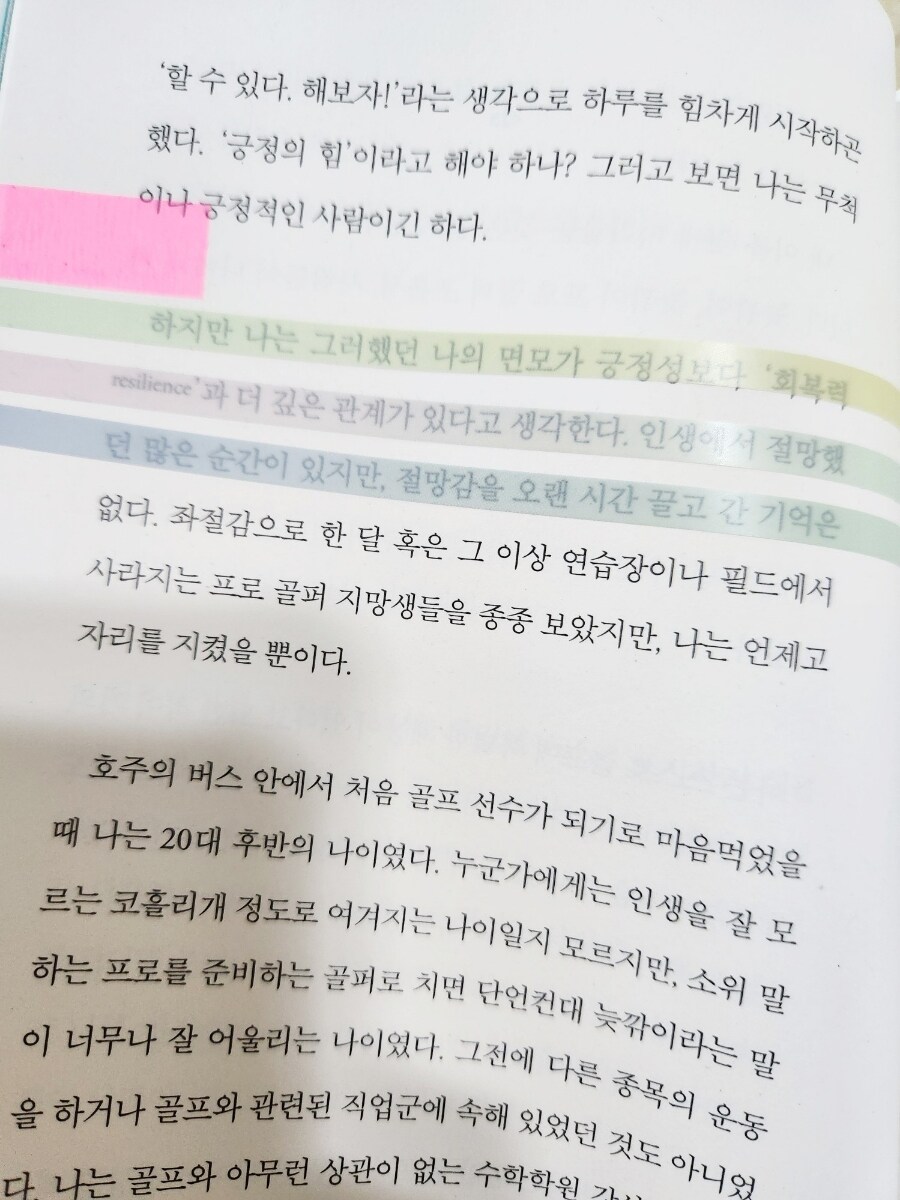 ‘할 수 있다. 해보자!’라는 생각으로 하루를 힘차게 시작하곤
했다. ‘긍정의 힘’이라고 해야 하나? 그러고 보면 나는 무척
이나 긍정적인 사람이긴 하다.
하지만 나는 그러했던 나의 면모가 긍정성보다 ‘회복력
resilience’과 더 깊은 관계가 있다고 생각한다. 인생에서 절망했
던 많은 순간이 있지만, 절망감을 오랜 시간 끌고 간 기억은
없다. 좌절감으로 한 달 혹은 그 이상 연습장이나 필드에서
사라지는 프로 골퍼 지망생들을 종종 보았지만, 나는 언제고
자리를 지켰을 뿐이다.
호주의 버스 안에서 처음 골프 선수가 되기로 마음먹었을
때 나는 20대 후반의 나이였다. 누군가에게는 인생을 잘 모
르는 코흘리개 정도로 여겨지는 나이일지 모르지만, 소위 말
하는 프로를 준비하는 골퍼로 치면 단언컨대 늦깎이라는 말
이 너무나 잘 어울리는 나이였다. 그전에 다른 종목의 운동
을 하거나 골프와 관련된 직업군에 속해 있었던 것도 아니었
다. 나는 골프와 아무런 상관이 없는 수학학원